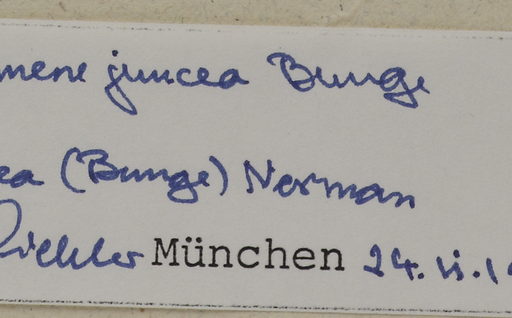 mene juncea Bunge
ea (Bunge) Norman
München 24. vi. 1